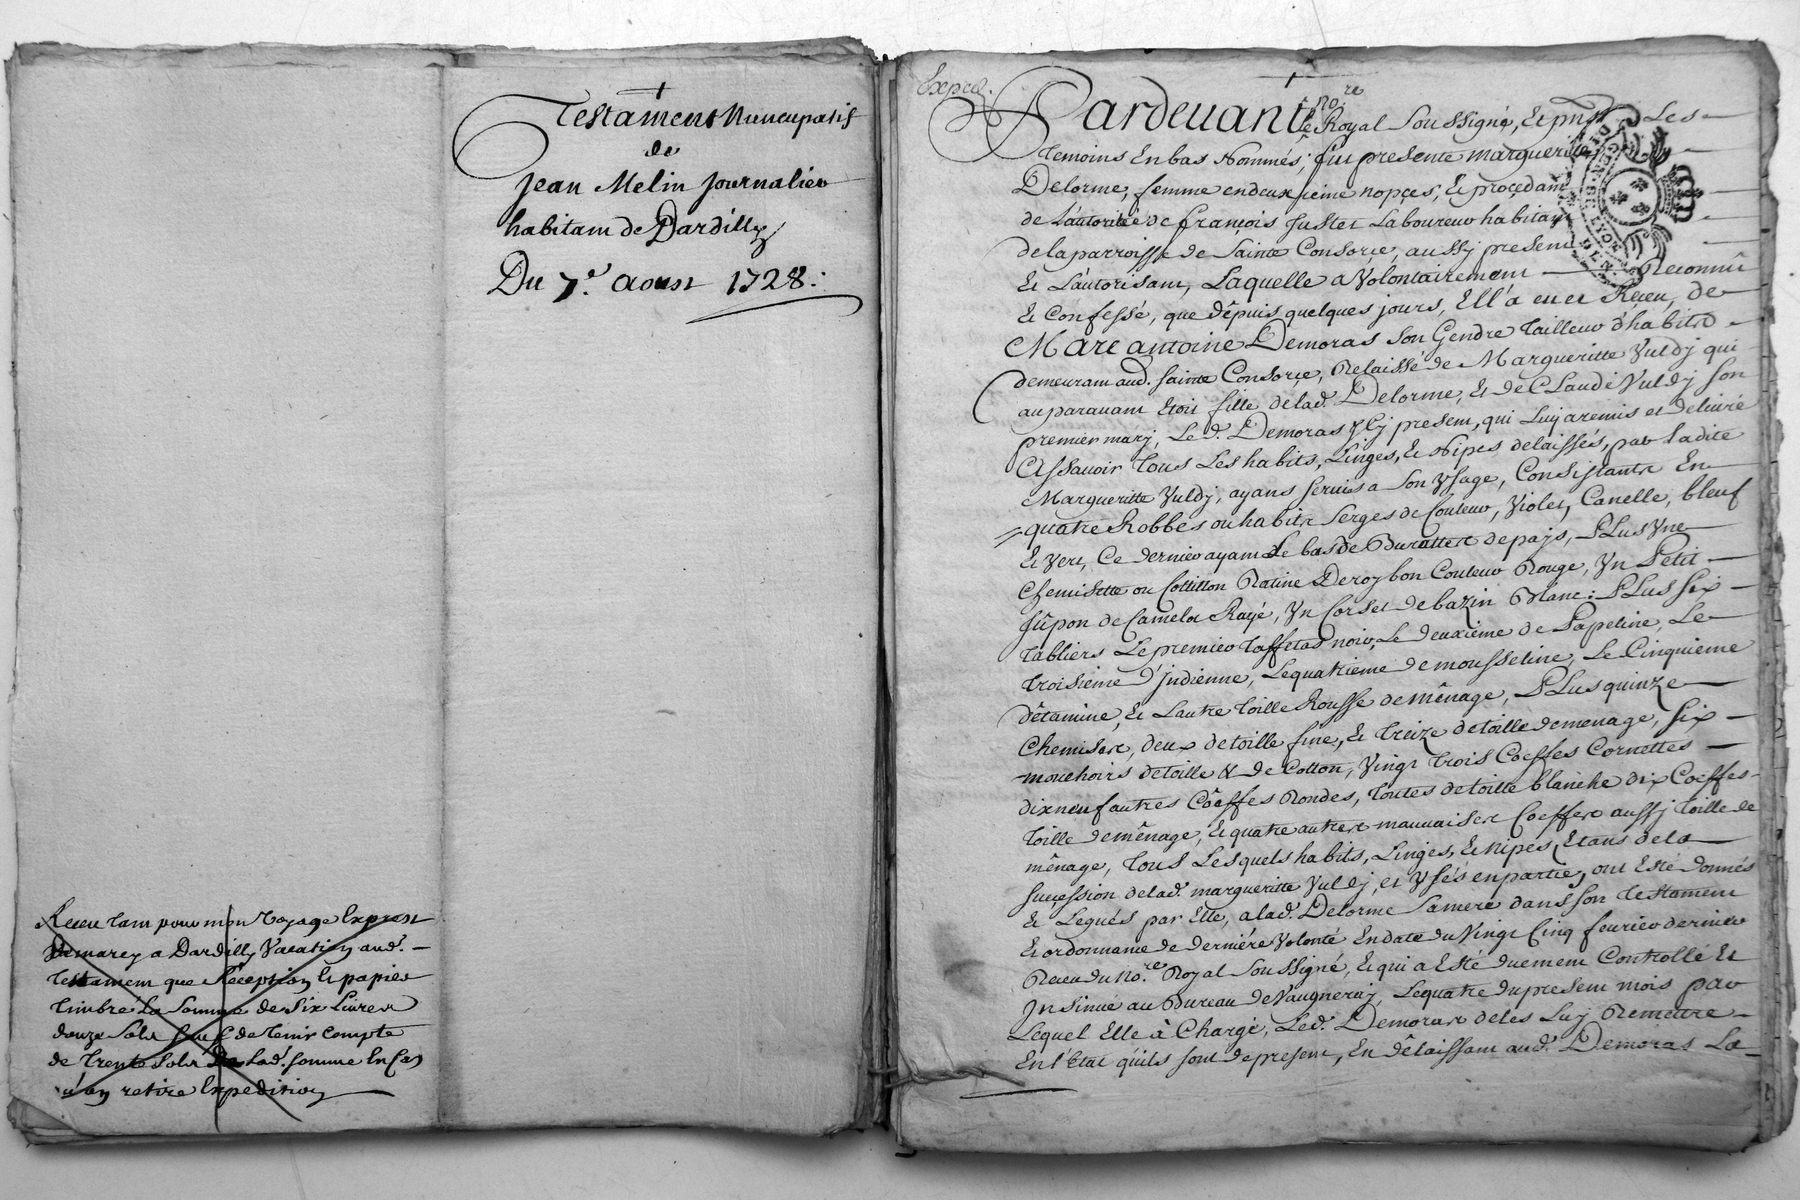 Testament Nuncupatif
de
Jean Melin Journalier
habitant de Dardilly
Du 7e. aoust 1728.
Receu tant pour mon Voyage Exprest
Demarcy a Dardilly Vacation aud.
testament que Réception Et papier
timbré La Somme de Six Livres
douze Sols sauf de tenir Compte
de trente Sols De lad. somme En Cas
qu'on retire Expedition
Exped.
Pardevant Le No.re Royal Soussigné, Et pnts Les
temoins En bas Nommés; fut presente margueritte
Delorme, femme en deuxieme nopçes, Et proçedant
de L'autorité de françois Juster Laboureur habitant
de la parroisse de Sainte Consorçe, aussy present
Et L'autorisant, Laquelle a Volontairement Reconnû
Et Confessé, que dêpuis quelques jours, Ell'a eu et Reçeu, de
Marc antoine Demoras Son Gendre tailleur d'habits
demeurant aud. Sainte Consorçe, Relaissé de Margueritte Vuldy qui
auparavant Etoit fille de lad. Delorme, Et de Claude Vuldy son
premier mary, Le d. Demoras Jcy present, qui Luy a remis et delivré
Assavoir tous Les habits, Linges, Et Nipes delaissés, par Ladite
Margueritte Vuldy, ayans servis a Son Vsage, Consistants En
quatre Robbes ou habits Serges de Couleur, Violet, Canelle, bleuf
Et Vert, Ce dernier ayant Le bas de Burattee de pays, Plus Vne
Chemisette ou Cotillon Ratine De roybon Couleur Rouge, Vn Petit
Jûpon de Camelot Rayé, Vn Corset de bazin Blanc: Plus six
tabliers Le premier taffetas noir, Le deuxieme de Papeline, Le
troisieme d'Jndienne, Le quatrieme de mousseline, Le Cinquieme
d'êtamine, Et L'autre toille Rousse de mênage, Plus quinze
Chemises, deux de toille fine, Et treize de toille de menage, six
mouchoirs de toille & de Cotton, Vingt trois Coeffes Cornettes
dix neuf autres Côeffes Rondes, toutes de toille blanche dix Coeffes
toille de mênage, Et quatre autres mauvaises Coeffes aussy toille de
mênage, tous Lesquels habits, Linges, Et Nipes Etans de la
succession de lad. margueritte Vuldy, et Vsés en partie, ont Esté donnés
Et Legués par Elle, a lad. Delorme Sa mere dans son testament
Et ordonnance de derniére Volonté En date du Vingt Cinq fevrier dernier
Receu du No.re Royal Soussigné, Et qui a Esté duement Controllé Et
Jnsinué au Bureau de Vaugneray, Le quatre du present mois par
Lequel Elle â Chargé, Led. Demoras de les Luy Remettre
En l'Etat qu'ils sont de present, En dêlaissant aud. Demoras La